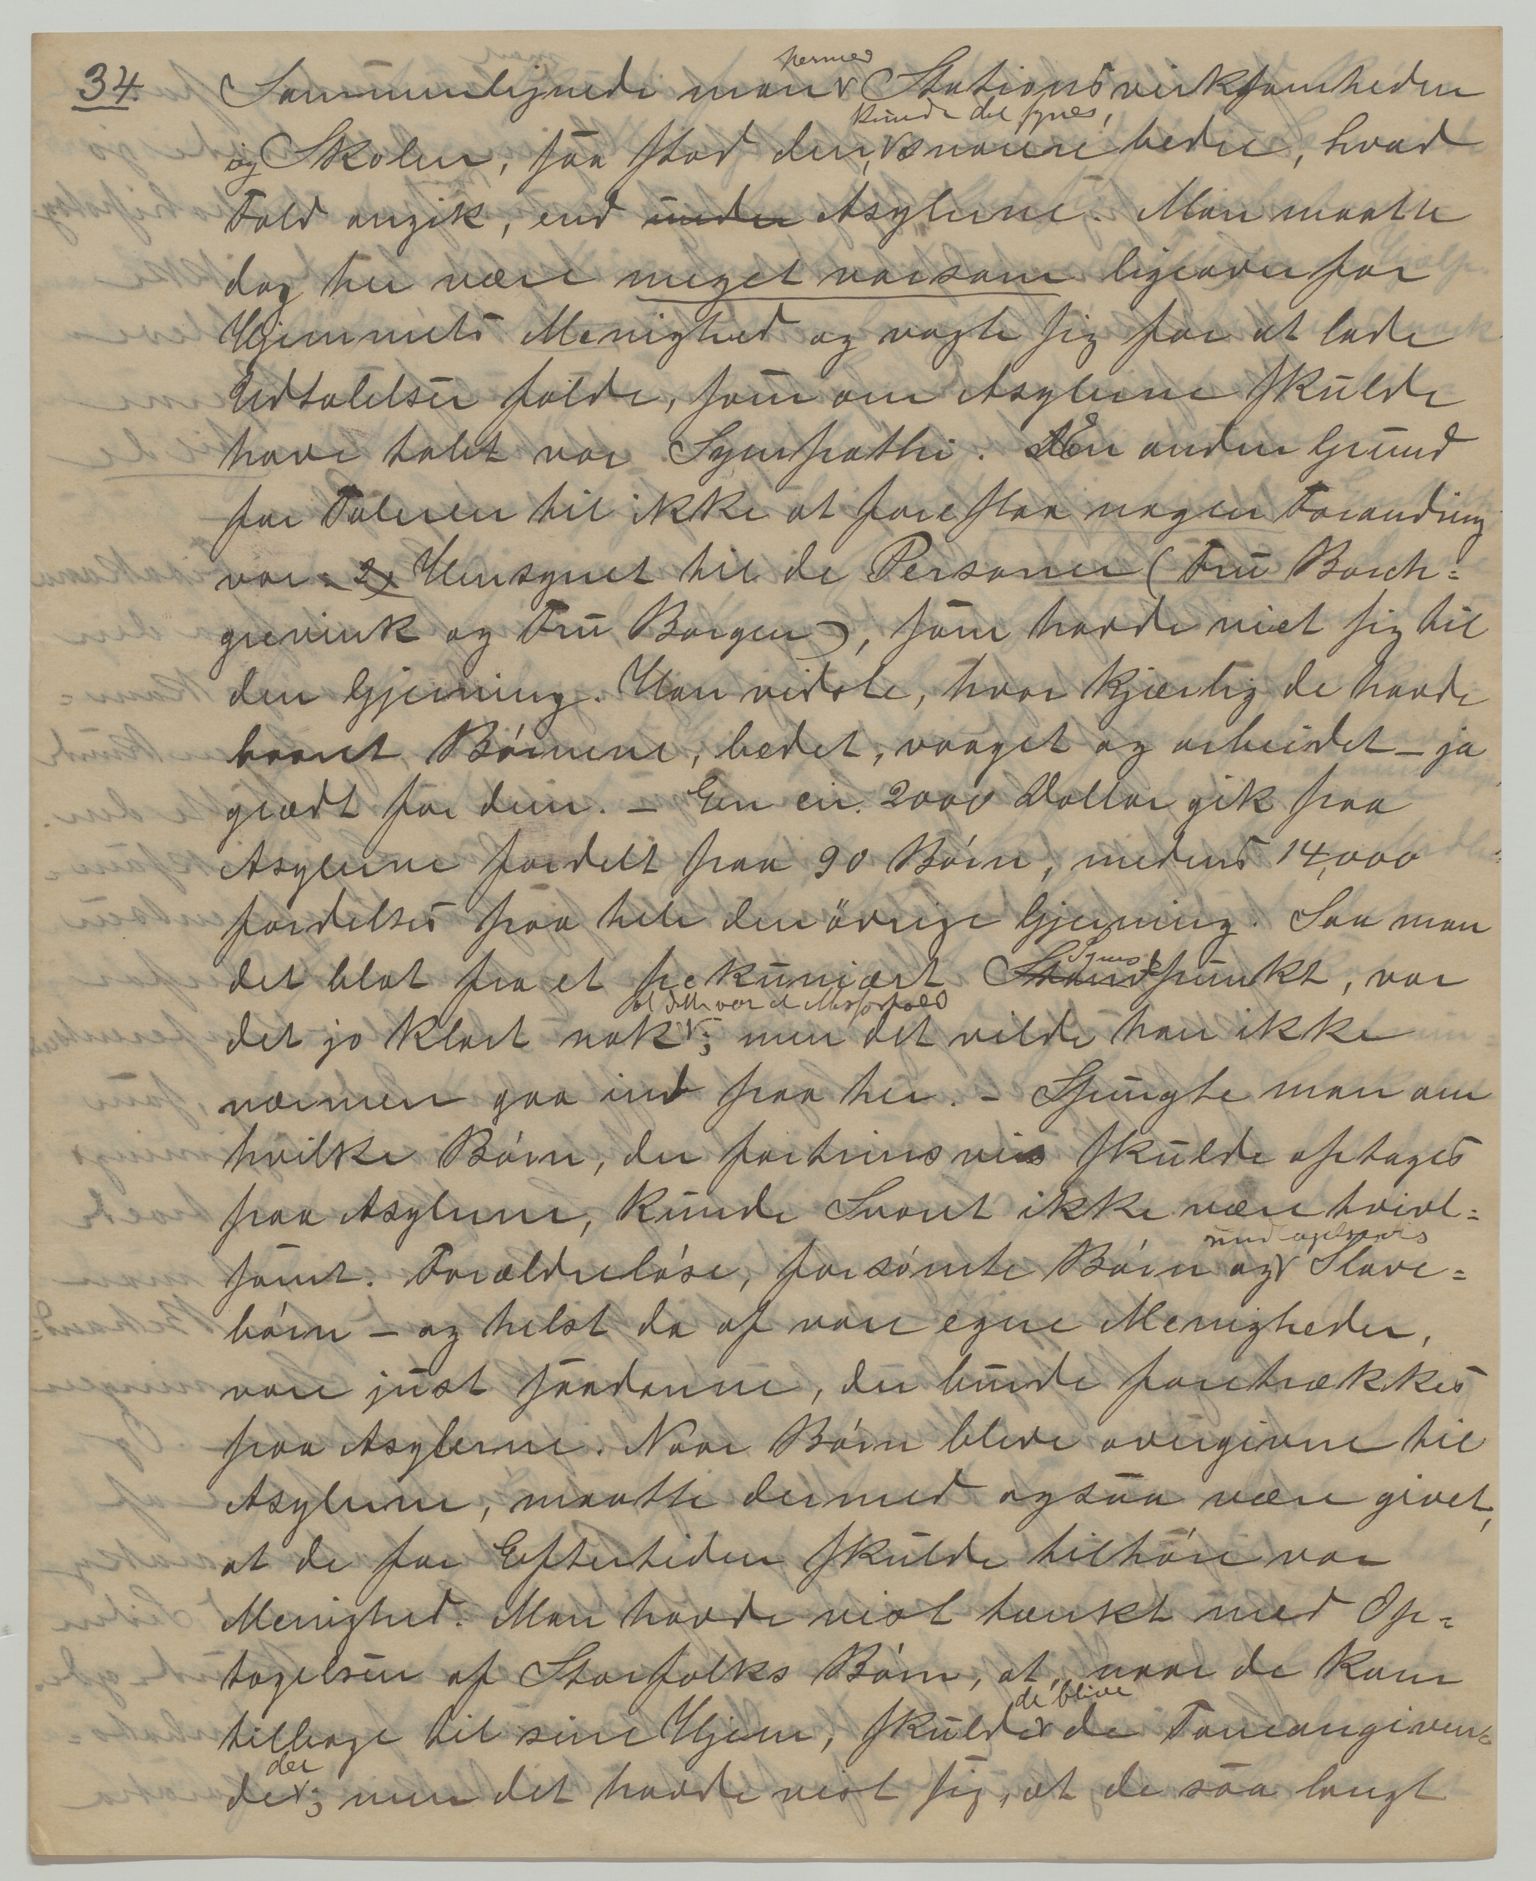 34. Sammenlignede man hermed Stationsvirksomheden
og Skolen, saa stod den, kunde det synes, snarere bedre, hvad
Told angik, end under Asylerne. Man maatte
dog her være meget varsom ligeover for
Hjemmets Menighed og vogte sig for at lade
Udtalelser falde, som om Asylerne skulde
have tabt vor Sympathi. En anden Grund
for Taleren til ikke at foreslaa nogen Forandring
var 2) Hensynet til de Personer (Fru Borch=
grevink og Fru Borgen), som havde viet sig til
den Gjerning. Han vidste, hvor kjærlig de havde
baaret Børnene, bedet, vaaget og arbeidet – ja
grædt for dem. – En ca. 2000 Dollar gik paa
Asylerne fordelt paa 90 Børn, medens 14,000
fordeltes paa hele den øvrige Gjerning. Saa man
det blot fra et pekuniært Standpunkt Synspunkt, var
det jo klart nok, at dette var et Misforhold; men det vilde han ikke
nærmere gaa ind paa her. – Spurgte man om
hvilke Børn, der fortrinsvis skulde optages
paa Asylerne, kunde Svaret ikke være tvivl=
somt. Forældreløse, forsømte Børn og Slave=
børn – og helst da af vore egne Menigheder,
vare just saadanne, der burde foretrækkes
paa Asylerne. Naar Børn bleve overgivne til
Asylerne, maatte dermed ogsaa være givet,
at de for Eftertiden skulde tilhøre vor
Menighed. Man havde vist tænkt med Op=
tagelsen af Storfolks Børn, at, naar de kom
tilbage til sine Hjem, skulde de blive de Toneangiven=
de der; men det havde vist sig, at de saa langt